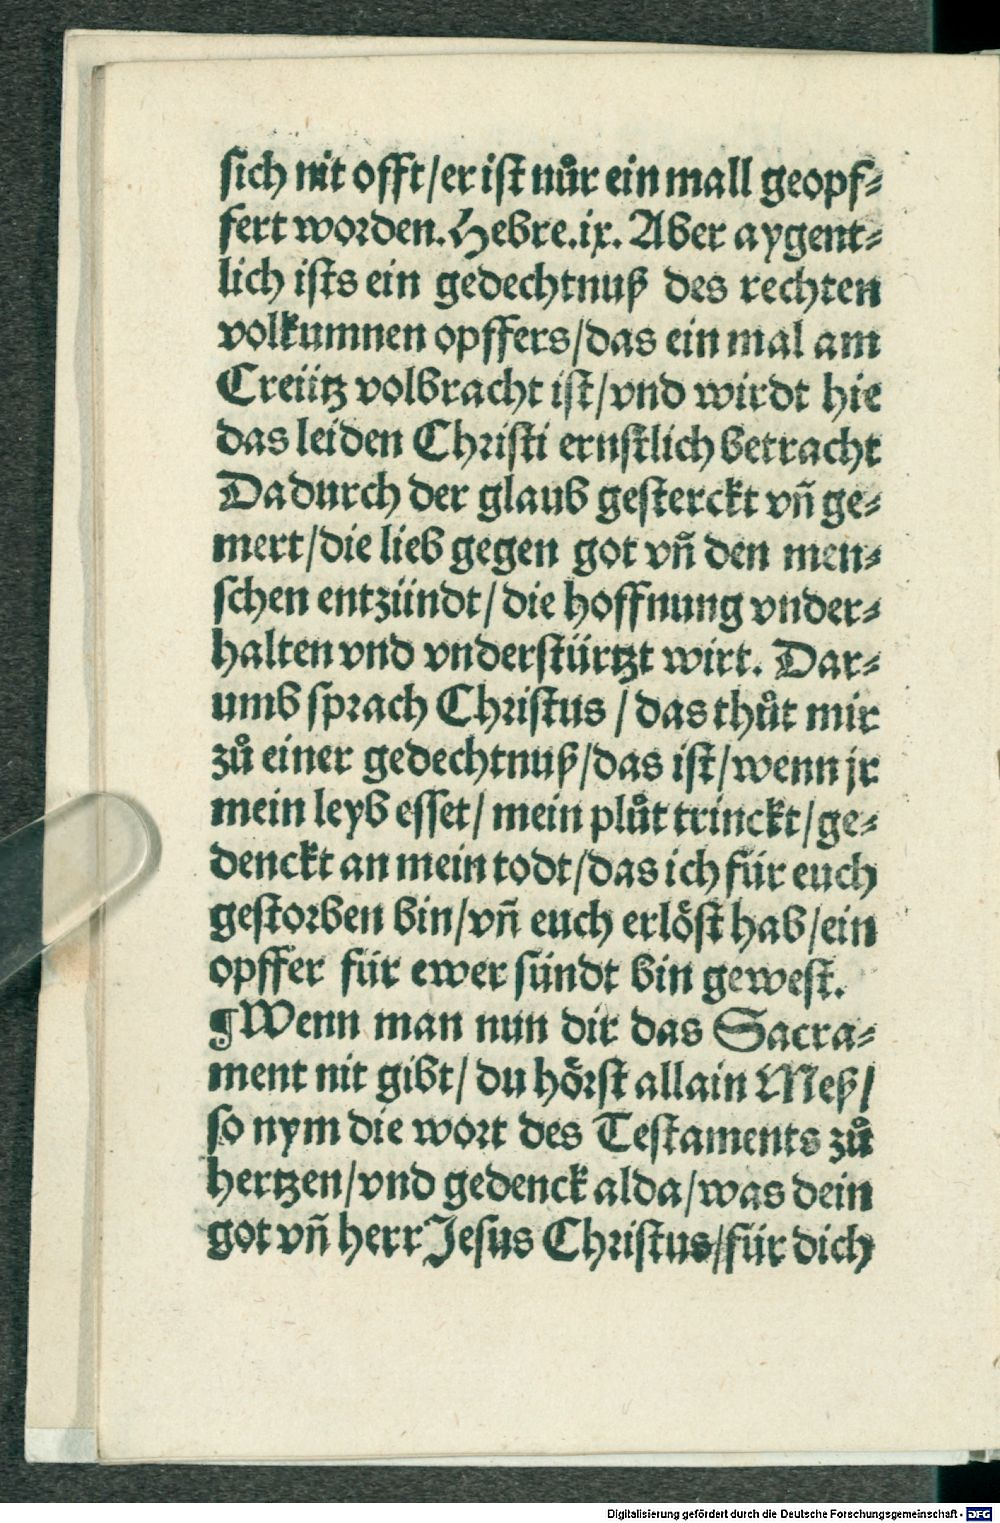 sich nit offt/er ist nůr ein mall geopf⸗
fert worden. Hebre.ix. Aber aygent⸗
lich ists ein gedechtnuß des rechten
volkumnen opffers/das ein mal am
Creütz volbracht ist/vnd wirdt hie
das leiden Christi ernstlich betracht
Dadurch der glaub gesterckt vñ ge⸗
mert/die lieb gegen got vñ den men⸗
schen entzündt/die hoffnung vnder⸗
halten vnd vnderstürtzt wirt. Dar⸗
umb sprach Christus / das thůt mir
zů einer gedechtnuß/das ist/wenn jr
mein leyb esset/ mein plůt trinckt/ge⸗
denckt an mein todt/das ich für euch
gestorben bin/vñ euch erlöst hab/ein
opffer für ewer sündt bin gewest.
¶Wenn man nun dir das Sacra⸗
ment nit gibt/ du hörst allain Meß/
so nym die wort des Testaments zů
hertzen/vnd gedenck alda/was dein
got vñ herr Jesus Christus/für dich
Digitalisierung gefördert durch die Deutsche Forschungsgemeinschaft - DFG